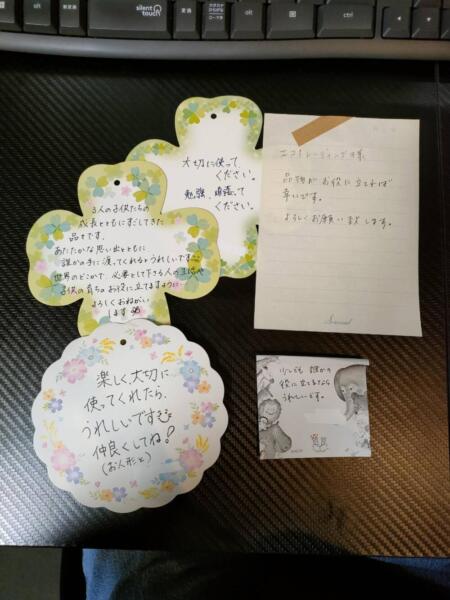 silent
touch
変換
カタカナ
ひらがな
ローマ字
alt
ctrl
大切に使って
ください。
勉強、頑張って
ください。
3人の子供たちの
成長とともにすごしてきた
品々です。
あたたかな思い出とともに
誰かの手に渡ってくれるとうれしいです
世界のどこかで、必要として下さる人の
子供の育ちのお役に立てますように…
よろしくおねがい
します
楽しく大切に
使ってくれたら、
うれしいです
仲良くしてね!
(お人形と)
エコトレーディング様
品物がお役に立てれば
幸いです。
よろしくお願い致します。
少しでも誰かの
役に立てるなら
うれしいです。